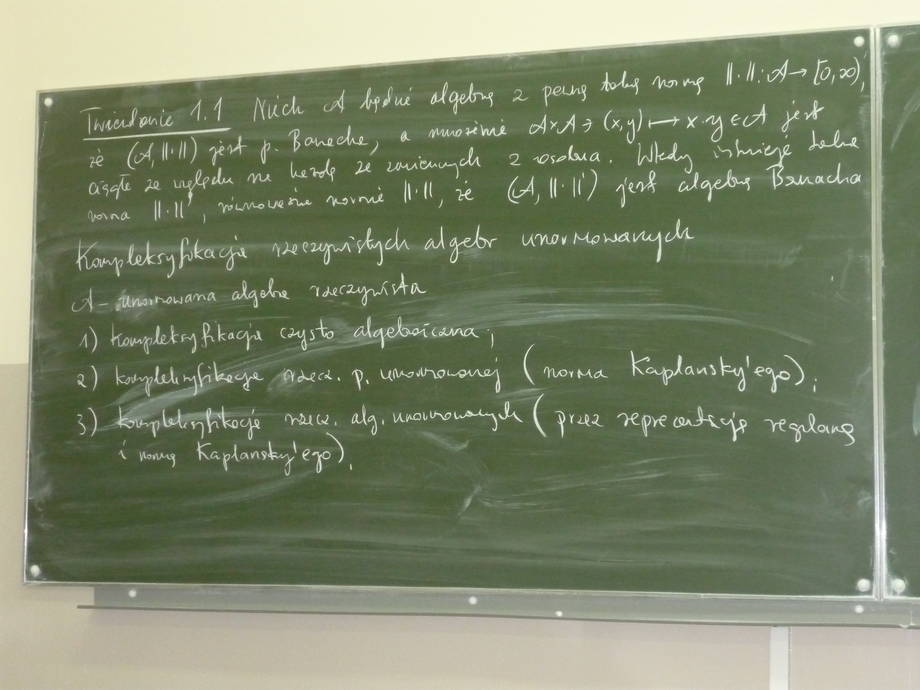 Twierdzenie 1.1 Niech A będzie algebrą z pewną taką normą ||·||: A → [0,∞),
że (A, ||·||) jest p. Banacha, a mnożenie A×A ∋ (x,y) ⟼ x·y ∈ A jest
ciągłe ze względu na każdą ze zmiennych z osobna. Wtedy istnieje taka
norma ||·||', równoważna normie ||·||, że (A, ||·||') jest algebrą Banacha
Kompleksyfikacja rzeczywistych algebr unormowanych
A – unormowana algebra rzeczywista
1) kompleksyfikacja czysto algebraiczna;
2) kompleksyfikacja rzecz. p. unormowanej (norma Kaplansky'ego);
3) kompleksyfikacja rzecz. alg. unormowanych (przez reprezentację regularną
i normę Kaplansky'ego).